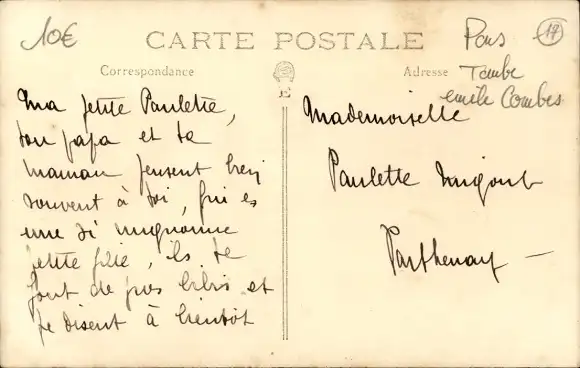 10€
CARTE POSTALE
Pons
17
Correspondance
Adresse
Tombe
emile Combes
E
Ma petite Paulette,
ton papa et ta
maman pensent bien
souvent à toi, qui es
une si mignonne
petite fille, ils te
font de gros bibis et
te disent à bientôt
Mademoiselle
Paulette
Parthenay –